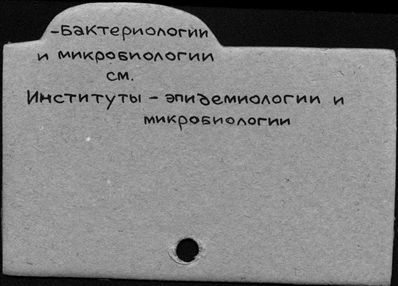 -Бактериологии
и микробиологии
см.
Институты - эпидемиологии и
микробиологии